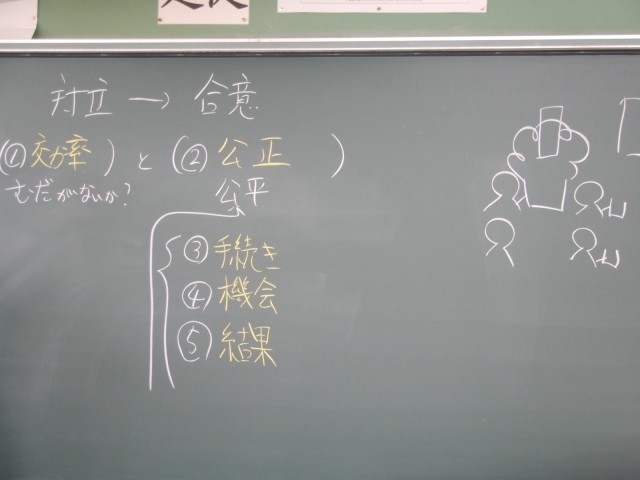 対立 → 合意
(① 効率) と (② 公正)
むだがないか?
公平
③ 手続き
④ 機会
⑤ 結果